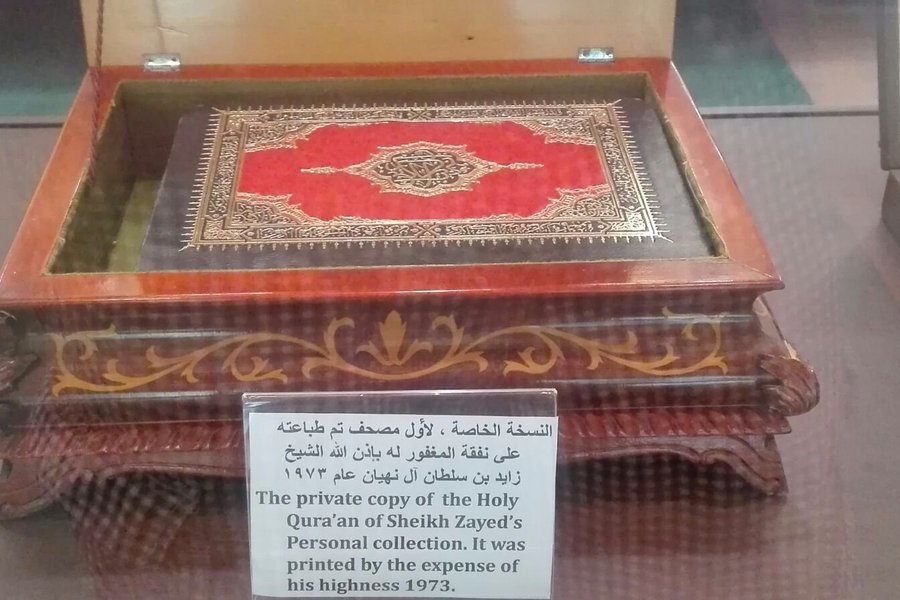 النسخة الخاصة ، لأول مصحف تم طباعته
على نفقة المغفور له بإذن الله الشيخ
زايد بن سلطان آل نهيان عام ١٩٧٣
The private copy of the Holy
Qura'an of Sheikh Zayed's
Personal collection. It was
printed by the expense of
his highness 1973.